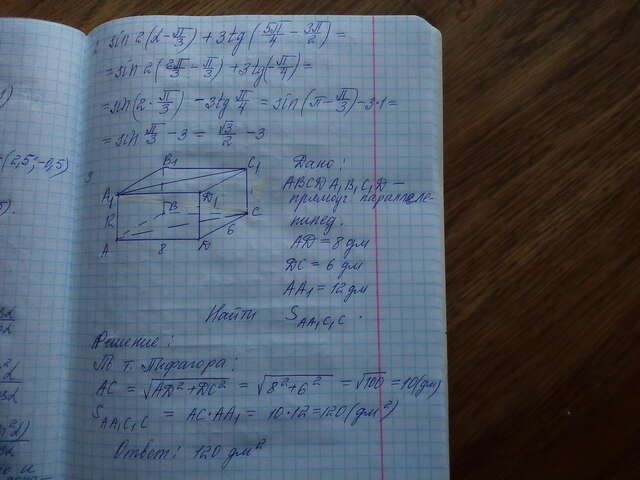 sin 2(2 - π/3) + 3tg(5π/4 - 3π/2) =
= sin 2(2π/3 - π/3) + 3tg(π/4) =
= sin(2·π/3) - 3tg π/4 = sin(π - π/3) - 3·1 =
= sin π/3 - 3 = √3/2 - 3
3
B1 C1
A1 D1
12 B C
6
A 8 D
Дано:
ABCDA1B1C1D -
прямоуг параллеле-
пипед.
AD = 8 дм
DC = 6 дм
AA1 = 12 дм
Найти S AA1C1C.
Решение:
т. Пифагора:
AC = √AD²+DC² = √8²+6² = √100 = 10(дм)
S AA1C1C = AC·AA1 = 10·12 = 120(дм²)
Ответ: 120 дм²
(2,5; -0,5)